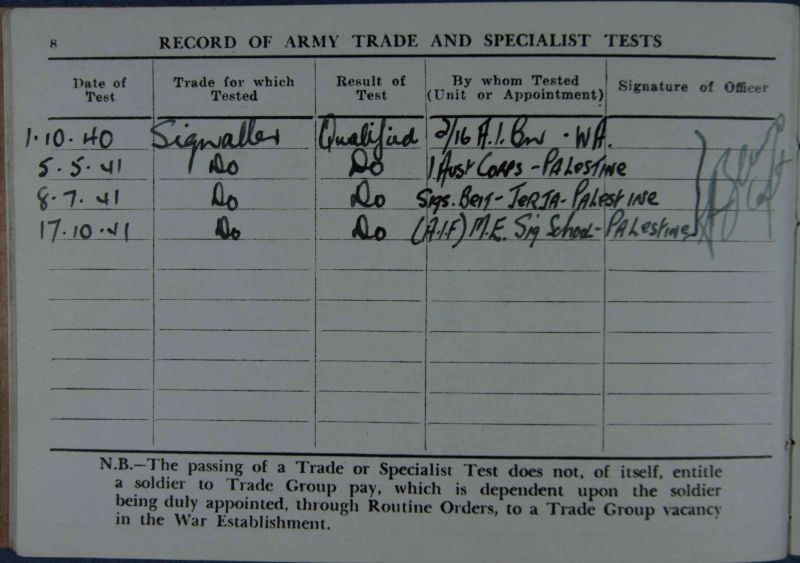 8 RECORD OF ARMY TRADE AND SPECIALIST TESTS
Date of Test Trade for which Tested Result of Test By whom Tested (Unit or Appointment) Signature of Officer
1.10.40 Signaller Qualified 2/16 A.I. Bn. WA.
5.5.41 Do Do 1 Aust Corps - PALESTINE
8.7.41 Do Do Sigs. Beit - JERJA - PALESTINE
17.10.41 Do Do (A.I.F) M.E. Sig School - PALESTINE
N.B.—The passing of a Trade or Specialist Test does not, of itself, entitle
a soldier to Trade Group pay, which is dependent upon the soldier
being duly appointed, through Routine Orders, to a Trade Group vacancy
in the War Establishment.